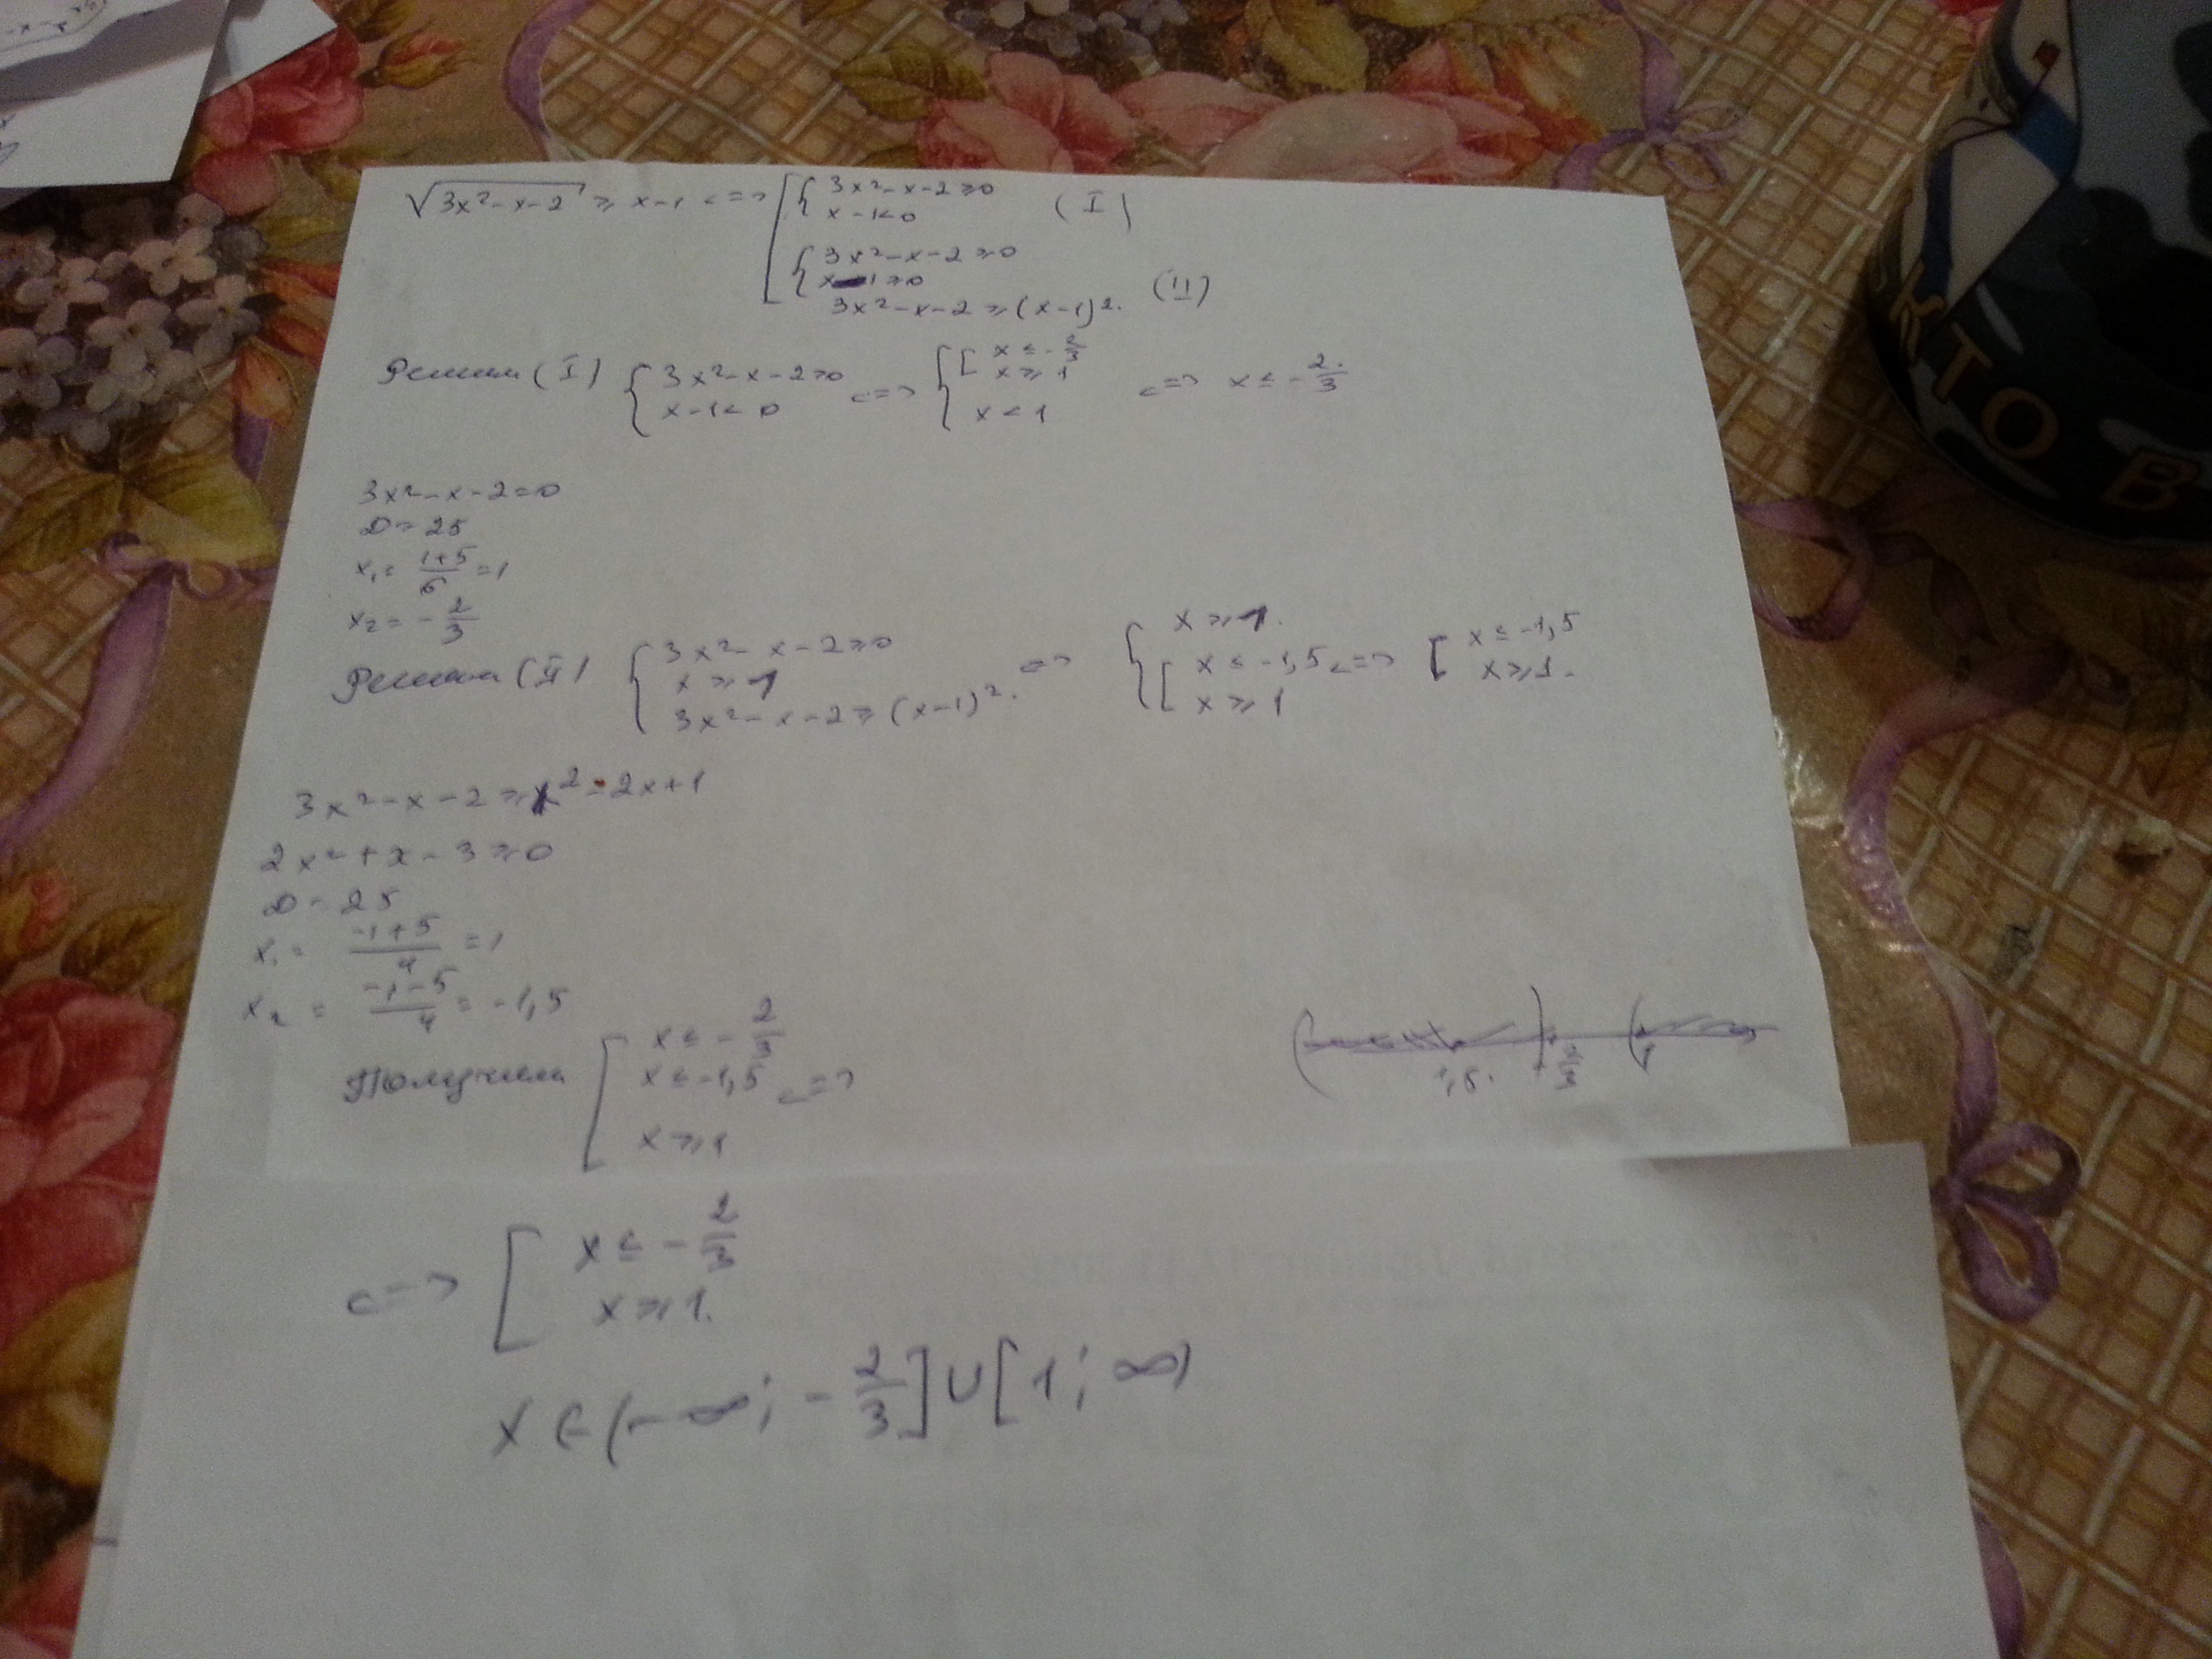 √3x²-x-2 ≥ x-1 <=> [ { 3x²-x-2≥0
x-1<0 (I)
{ 3x²-x-2≥0
x-1≥0
3x²-x-2≥(x-1)². (II)
Решим (I) { 3x²-x-2≥0 <=> { [ x≤-2/3
x≥1
x-1<0
x<1 <=> x≤-2/3
3x²-x-2=0
D=25
x₁= (1+5)/6 =1
x₂=-2/3
Решим (II) { 3x²-x-2≥0
x≥1
3x²-x-2≥(x-1)². <=> { x≥1.
[ x≤-1,5
x≥1 <=> [ x≤-1,5
x≥1.
3x²-x-2≥x²-2x+1
2x²+x-3≥0
D=25
x₁= (-1+5)/4 =1
x₂= (-1-5)/4 =-1,5
Получили [ x≤-2/3
x≤-1,5 <=>
x≥1
<=> [ x≤-2/3
x≥1.
x∈(-∞;-2/3]∪[1;∞)
КТО В